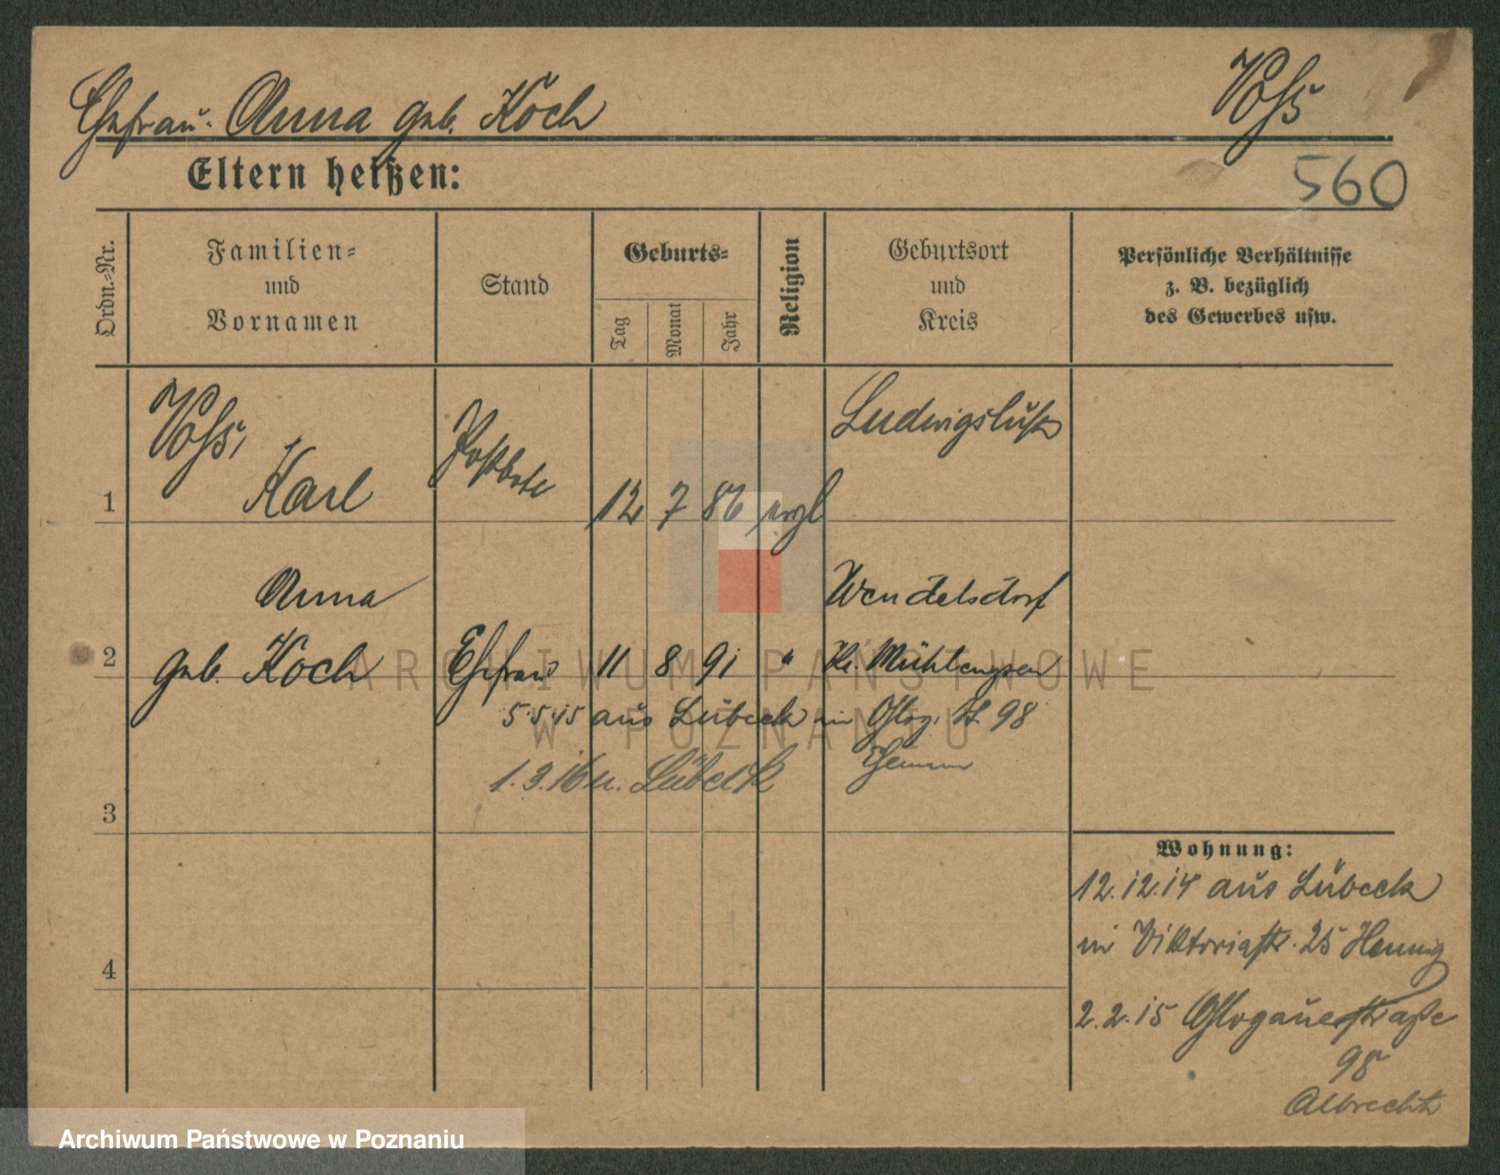 Ehefrau: Anna geb. Koch
Voß
Eltern heißen:
560
Ordn.=Nr.
Familien=
und
Vornamen
Stand
Geburts=
Tag
Monat
Jahr
Religion
Geburtsort
und
Kreis
Persönliche Verhältnisse
z. B. bezüglich
des Gewerbes usw.
1
Voß,
Karl
Postbote
12 7 86 evgl
Ludwigslust
2
Anna
geb. Koch
Ehefrau 11 8 91 "
Wendelsdorf
5.5.15 aus Lübeck in Glog. St 98
1.3.16 n. Lübeck
3
4
Wohnung:
12.12.14 aus Lübeck
in Viktoriastr. 25 Hennig
2.2.15 Glogauerstraße
98
Albrecht
ARCHIWUM PAŃSTWOWE
W POZNANIU
Archiwum Państwowe w Poznaniu